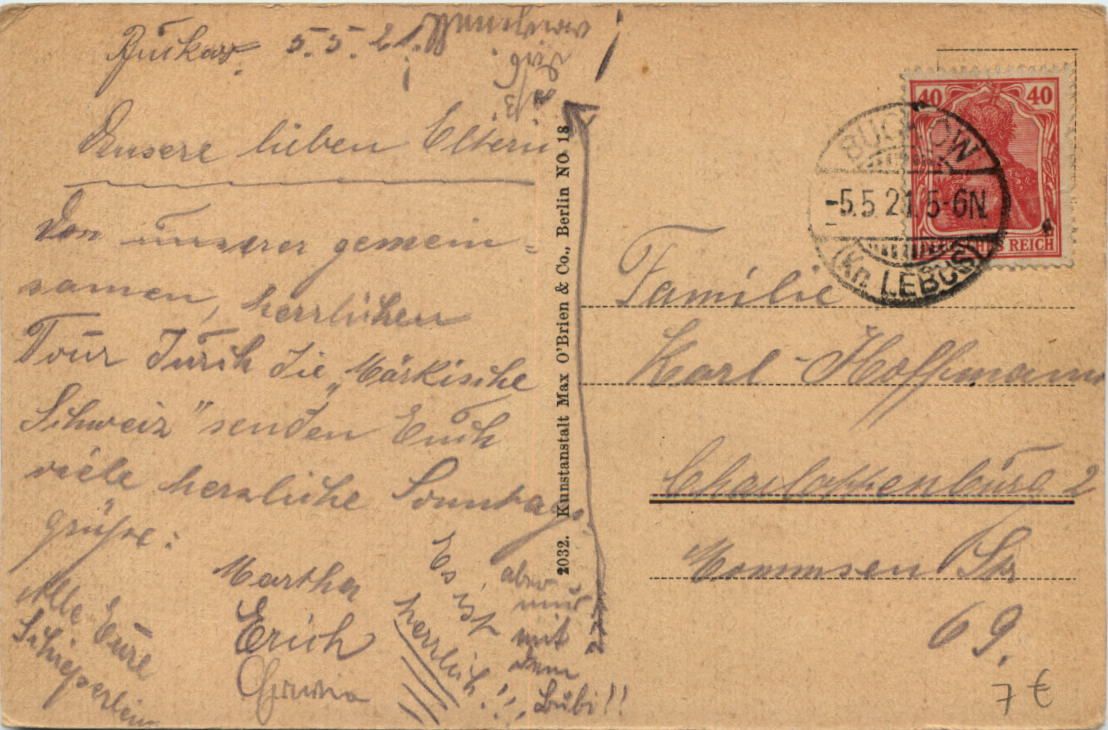 Buckow. 5.5.21.
Unsere lieben Eltern
Von unserer gemein=
samen, herrlichen
Tour durch die „Märkische
Schweiz" senden Euch
viele herzliche Sonntags
grüße:
Martha
Erich
Alle Eure
Es ist
herrlich!!
aber
nur
mit
dem
Bubi!!
2032. Kunstanstalt Max O'Brien & Co., Berlin NO 18
40 40
DEUTSCHES REICH
BUCKOW
-5.5.21.5-6N.
(Kr. LEBUS)
Familie
Karl Hoffmann
Charlottenburg 2
Mommsen Str
69.
7 €